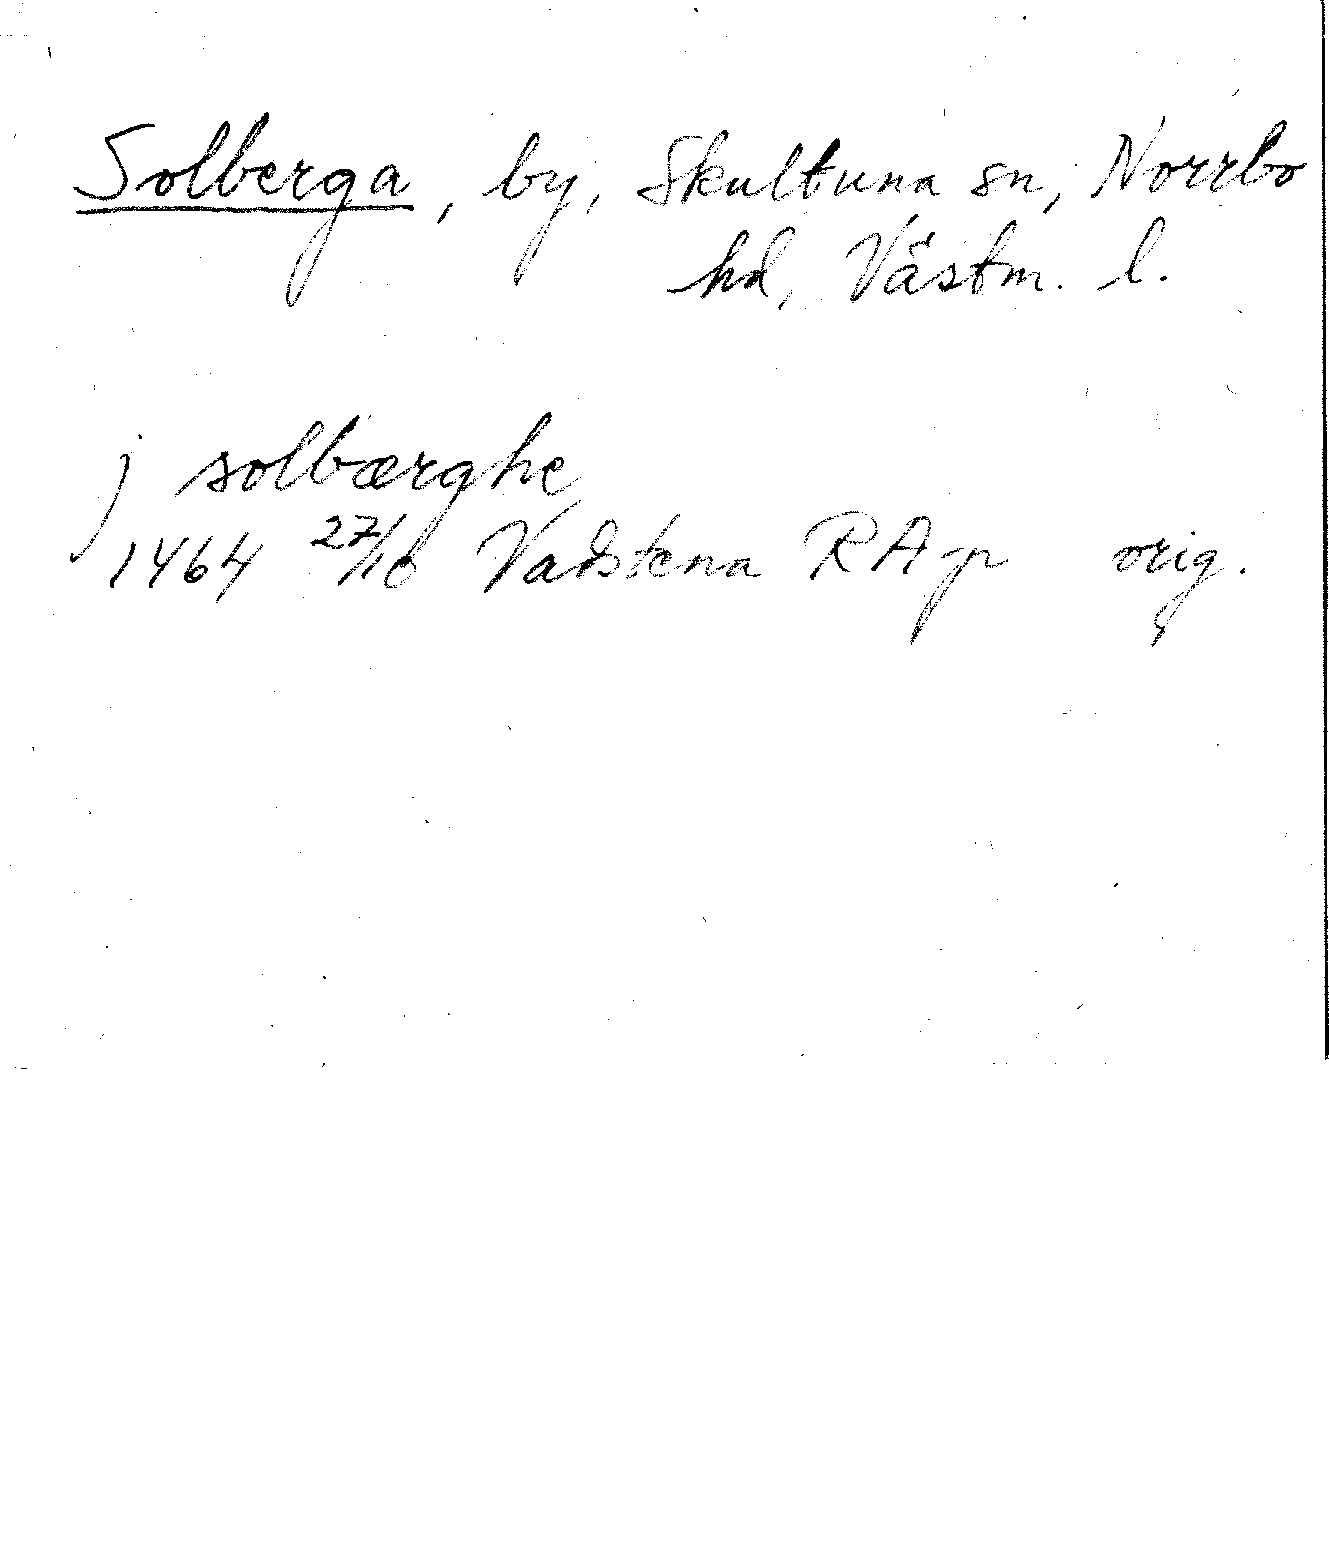 Solberga, by, Skultuna sn, Norrbo
hd, Västm. l.
j solbærghe
1464 27/10 Vadstena RAp orig.